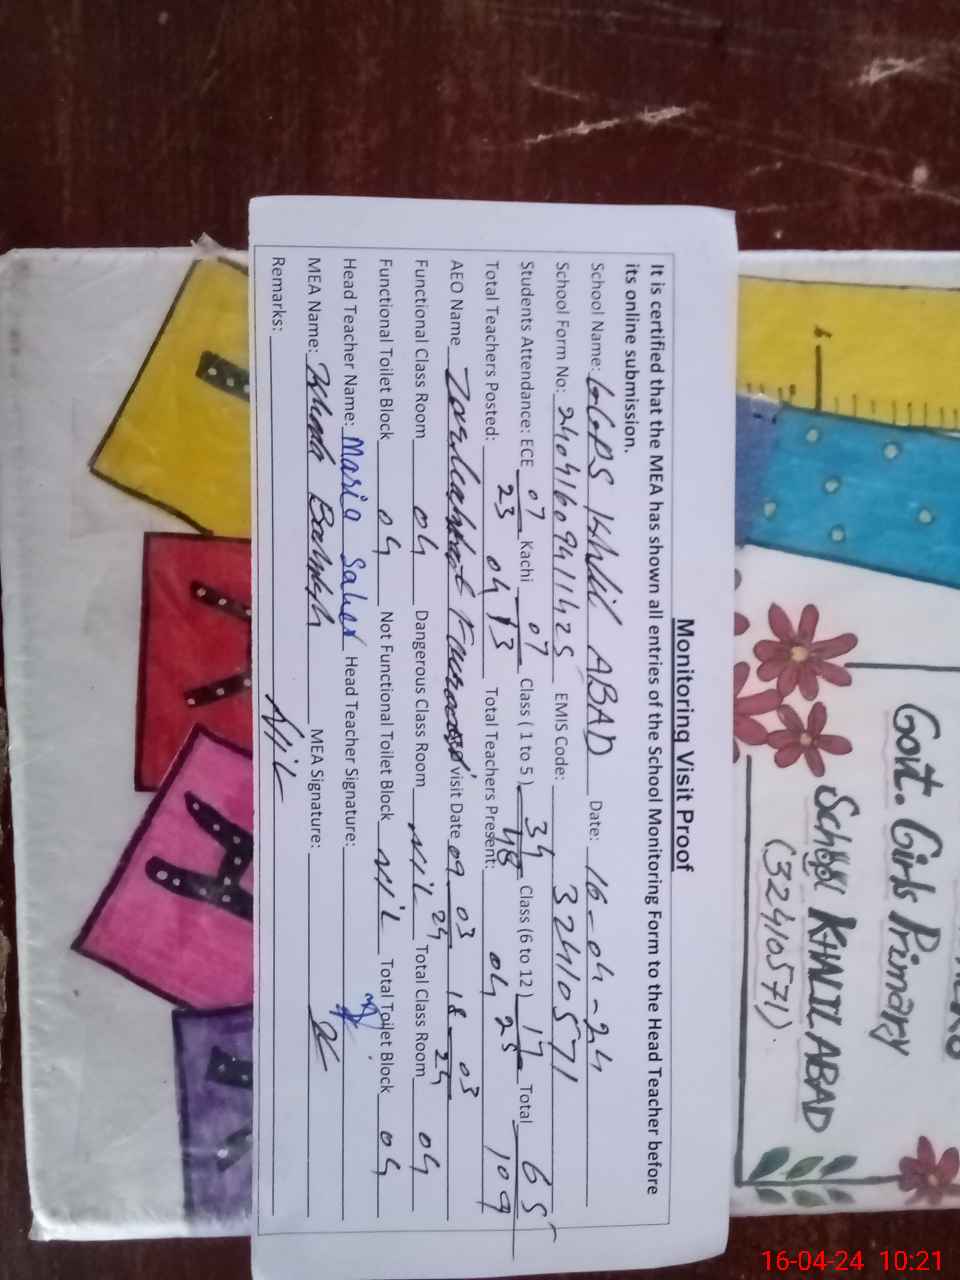 Monitoring Visit Proof
It is certified that the MEA has shown all entries of the School Monitoring Form to the Head Teacher before
its online submission.
School Name: GGPS Khalil ABAD Date: 16-04-24
School Form No: EMIS Code: 32410571
Students Attendance: ECE 07/23 Kachi 07/13 Class ( 1 to 5 ) 34/48 Class (6 to 12 ) 17/25 Total 65/109
Total Teachers Posted: 04 Total Teachers Present: 04
AEO Name visit Date 09 03 24 18 03 24
Functional Class Room 04 Dangerous Class Room NIL Total Class Room 04
Functional Toilet Block 04 Not Functional Toilet Block NIL Total Toilet Block 04
Head Teacher Name: Maria Saher Head Teacher Signature:
MEA Name: MEA Signature:
Remarks: NIL
Govt. Girls Primary
School KHALIL ABAD
(32410571)
16-04-24 10:21